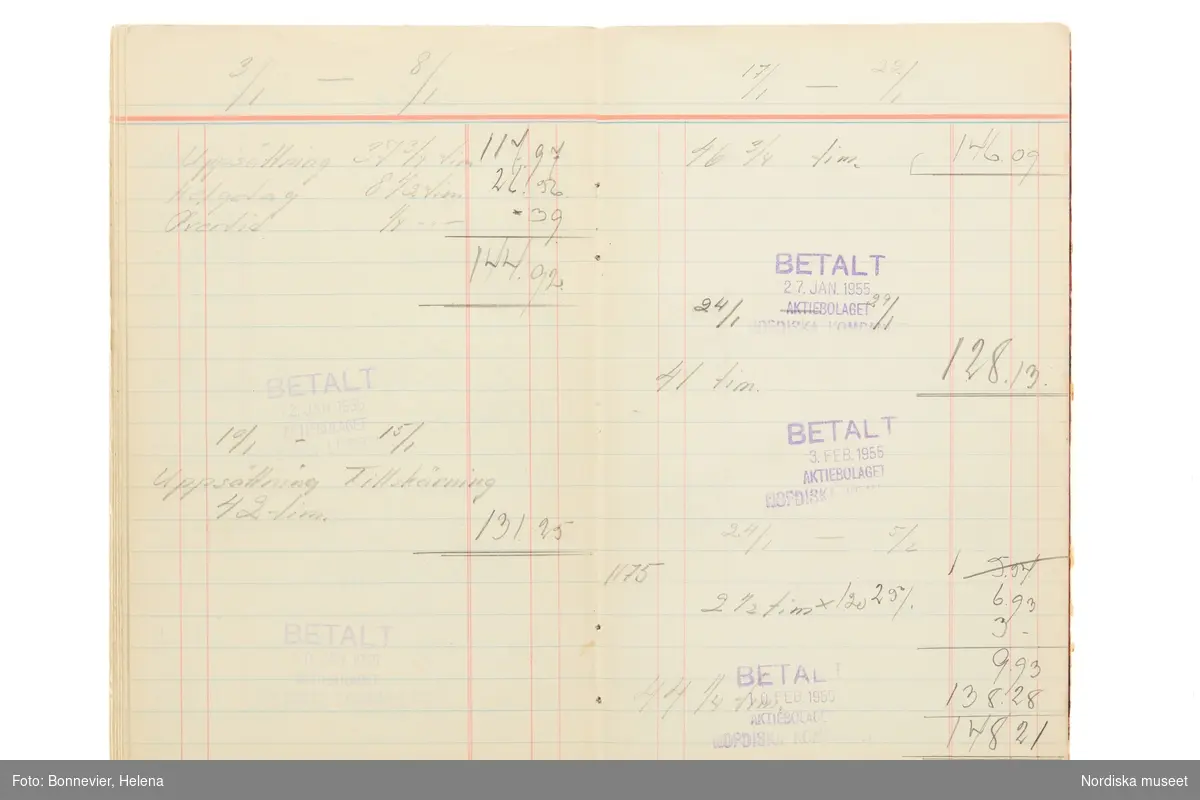 3/1 — 8/1
Uppsättning 37 3/4 tim 117,97
Helgdag 8 1/2 tim. 26.56
Övertid 1/4 -39
144.92.
BETALT
JAN 1955
10/1 - 15/1
Uppsättning Tillskärning
42 tim.
131.25
BETALT
17/1 — 22/1
46 3/4 tim. 146.09
BETALT
27. JAN. 1955
AKTIEBOLAGET
NORDISKA KOMPAN
24/1 29/1
41 tim. 128.13.
BETALT
3. FEB. 1955
AKTIEBOLAGET
NORDISKA
24/1 — 5/2
1175
2 1/2 tim 25% 6.93
3 -
9.93
44 1/4 tim. 138.28
BETALT
10. FEB. 1955
AKTIEBOLAGE
NORDISKA
148 21
Foto: Bonnevier, Helena
Nordiska museet